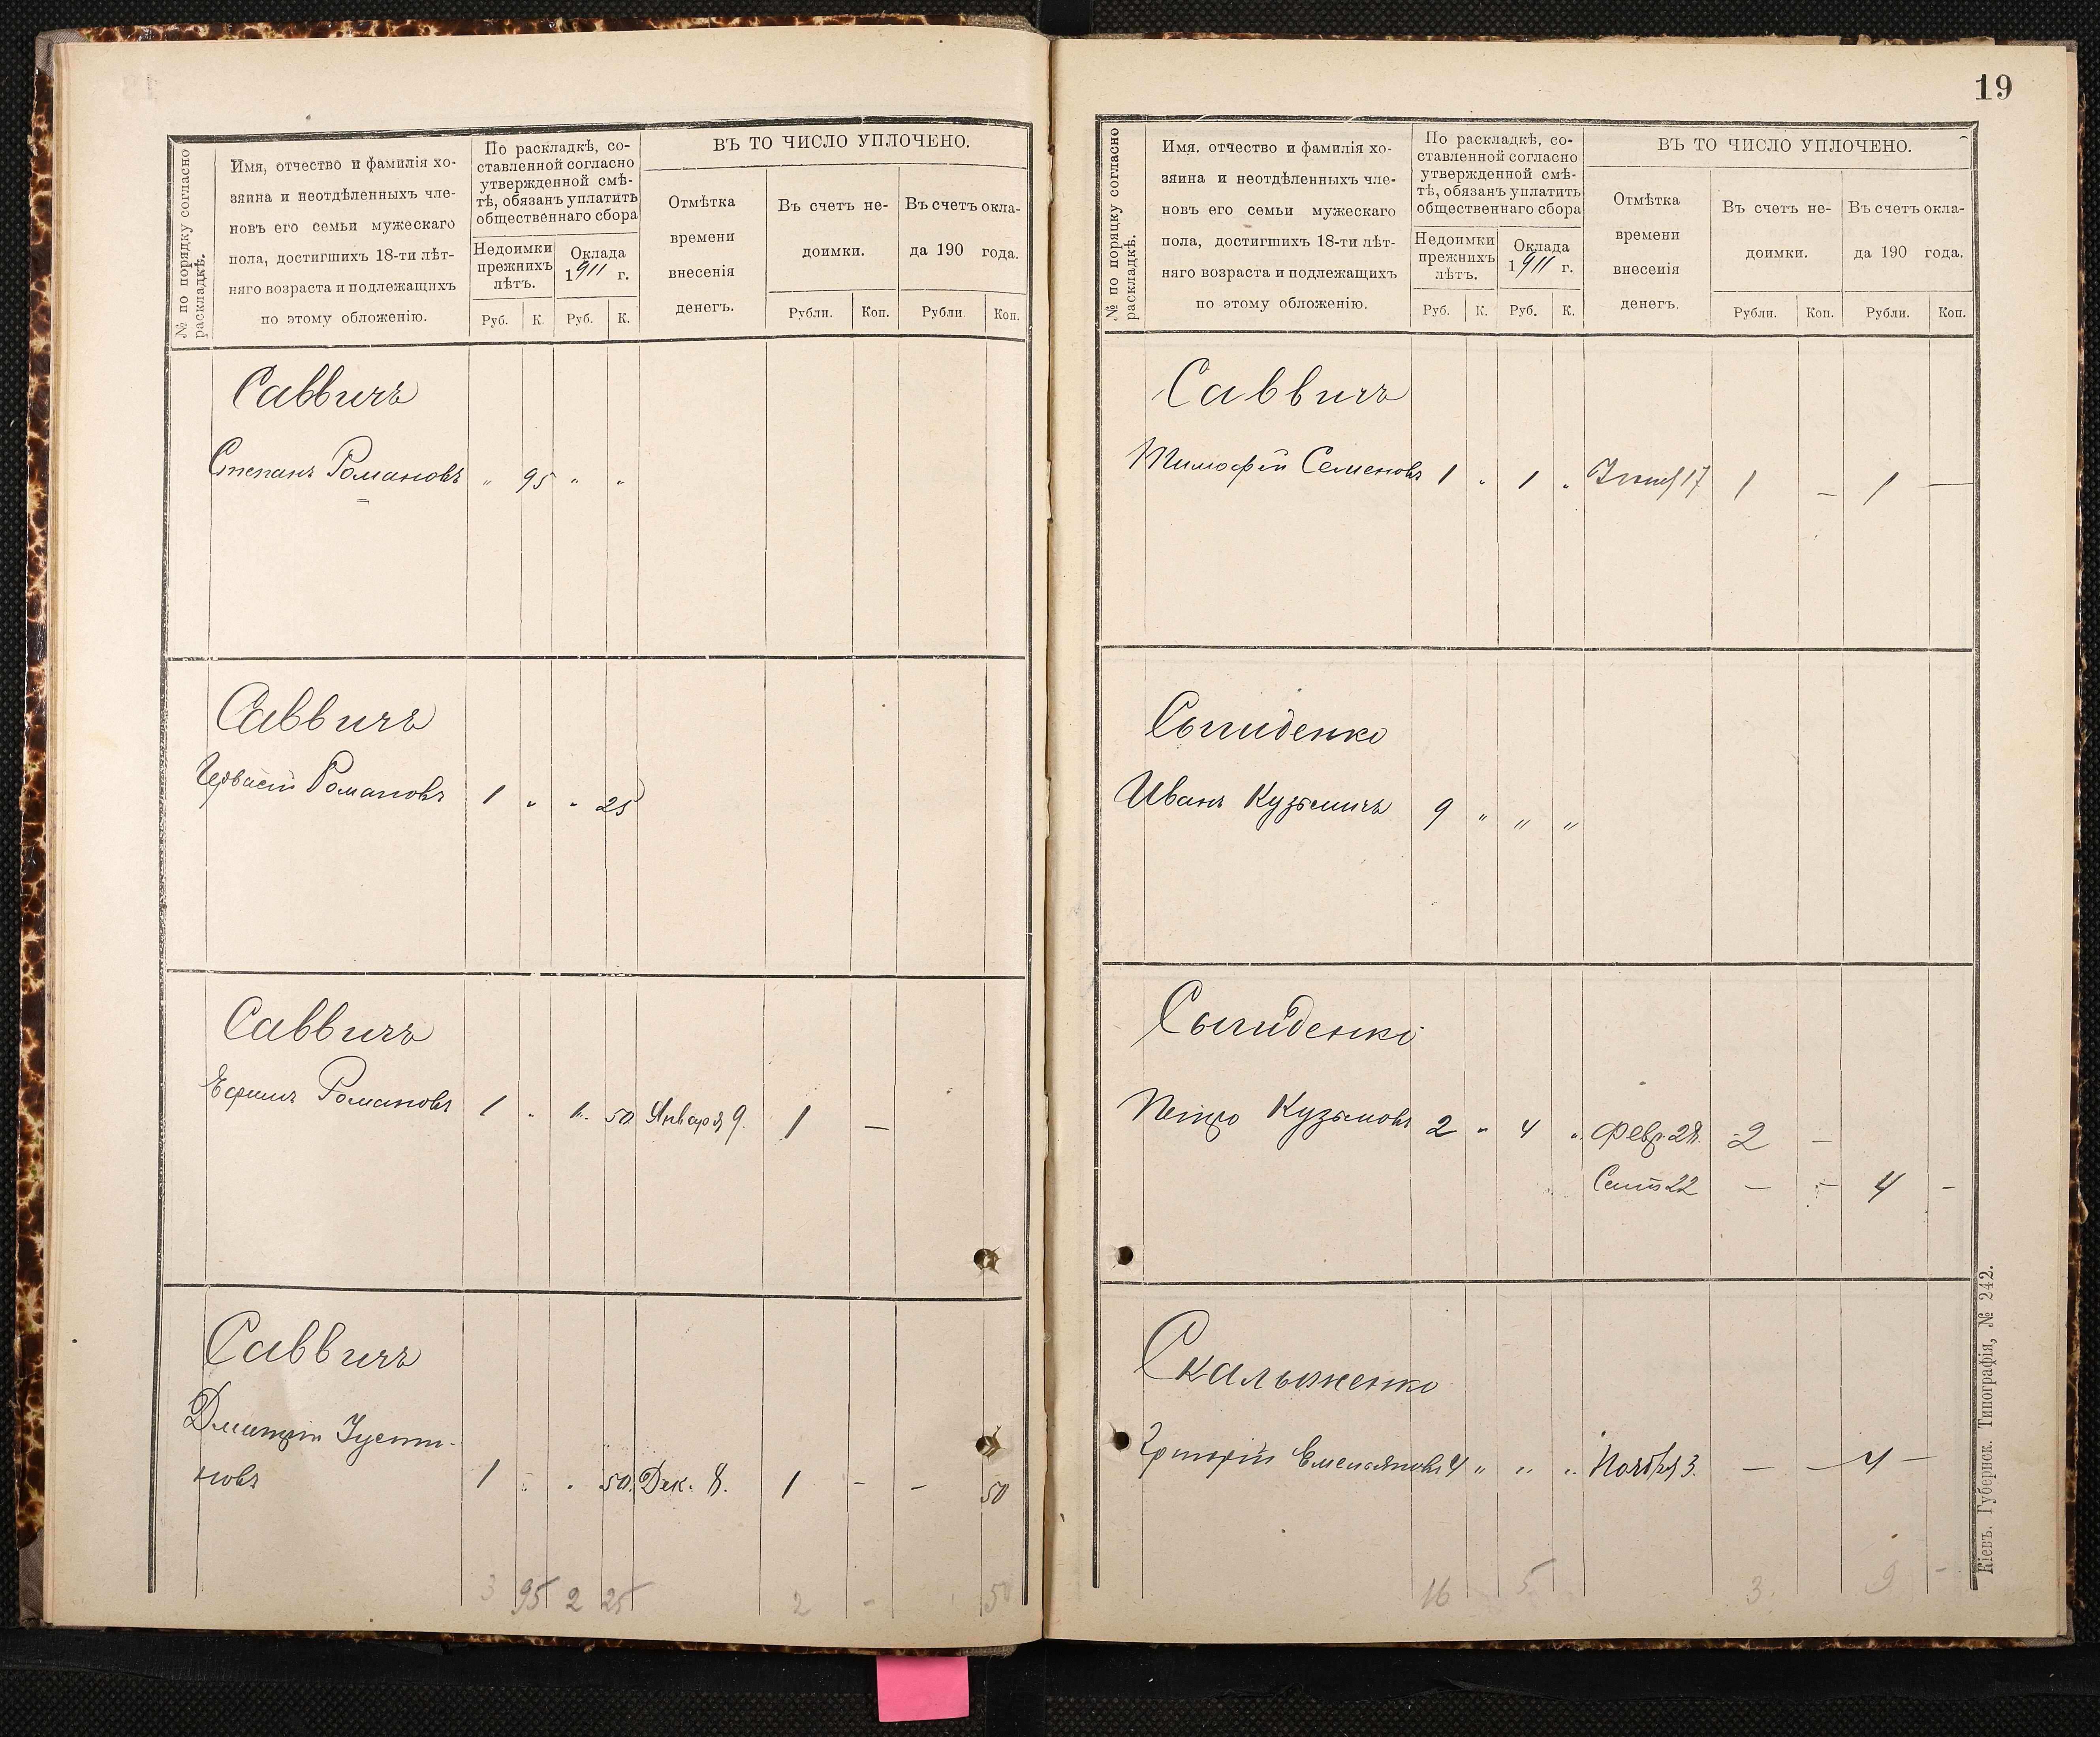 № по порядку согласно
раскладкѣ.
Имя, отчество и фамилія хо-
зяина и неотдѣленныхъ чле-
новъ его семьи мужескаго
пола, достигшихъ 18-ти лѣт-
няго возраста и подлежащихъ
по этому обложенію.
По раскладкѣ, со-
ставленной согласно
утвержденной смѣ-
тѣ, обязанъ уплатить
общественнаго сбора
Недоимки
прежнихъ
лѣтъ.
Оклада
1911 г.
Руб. К. Руб. К.
ВЪ ТО ЧИСЛО УПЛОЧЕНО.
Отмѣтка
времени
внесенія
денегъ.
Въ счетъ не-
доимки.
Въ счетъ окла-
да 190 года.
Рубли. Коп. Рубли. Коп.
Саввичъ
Степанъ Романовъ " 95 " "
Саввичъ
Романовъ 1 " " 25
Саввичъ
Ефимъ Романовъ 1 " 1 50 Января 9. 1 —
Саввичъ
Дмитрій Густи-
новъ 1 " " 50 Дек. 8. 1 - - 50
3 95 2 25 2 - 50
19
№ по порядку согласно
раскладкѣ.
Имя. отчество и фамилія хо-
зяина и неотдѣленныхъ чле-
новъ его семьи мужескаго
пола, достигшихъ 18-ти лѣт-
няго возраста и подлежащихъ
по этому обложенію.
По раскладкѣ, со-
ставленной согласно
утвержденной смѣ-
тѣ, обязанъ уплатить
общественнаго сбора
Недоимки
прежнихъ
лѣтъ.
Оклада
1911 г.
Руб. К. Руб. К.
ВЪ ТО ЧИСЛО УПЛОЧЕНО.
Отмѣтка
времени
внесенія
денегъ.
Въ счетъ не-
доимки.
Въ счетъ окла-
да 190 года.
Рубли. Коп. Рубли. Коп.
Саввичъ
Тимофей Семеновъ 1 " 1 " 17 1 — 1 —
Сыгиденко
Иванъ Кузьмичъ 9 " " "
Сыгиденко
Петро Кузьмовъ 2 " 4 " Февр. 28. 2 —
Сент 22 — - 4 -
Скальженко
Григорій Емельяновъ 4 " " " Ноября 3. — — 4 —
16 5 3. 9 -
Кіевъ. Губернск. Типографія, № 242.